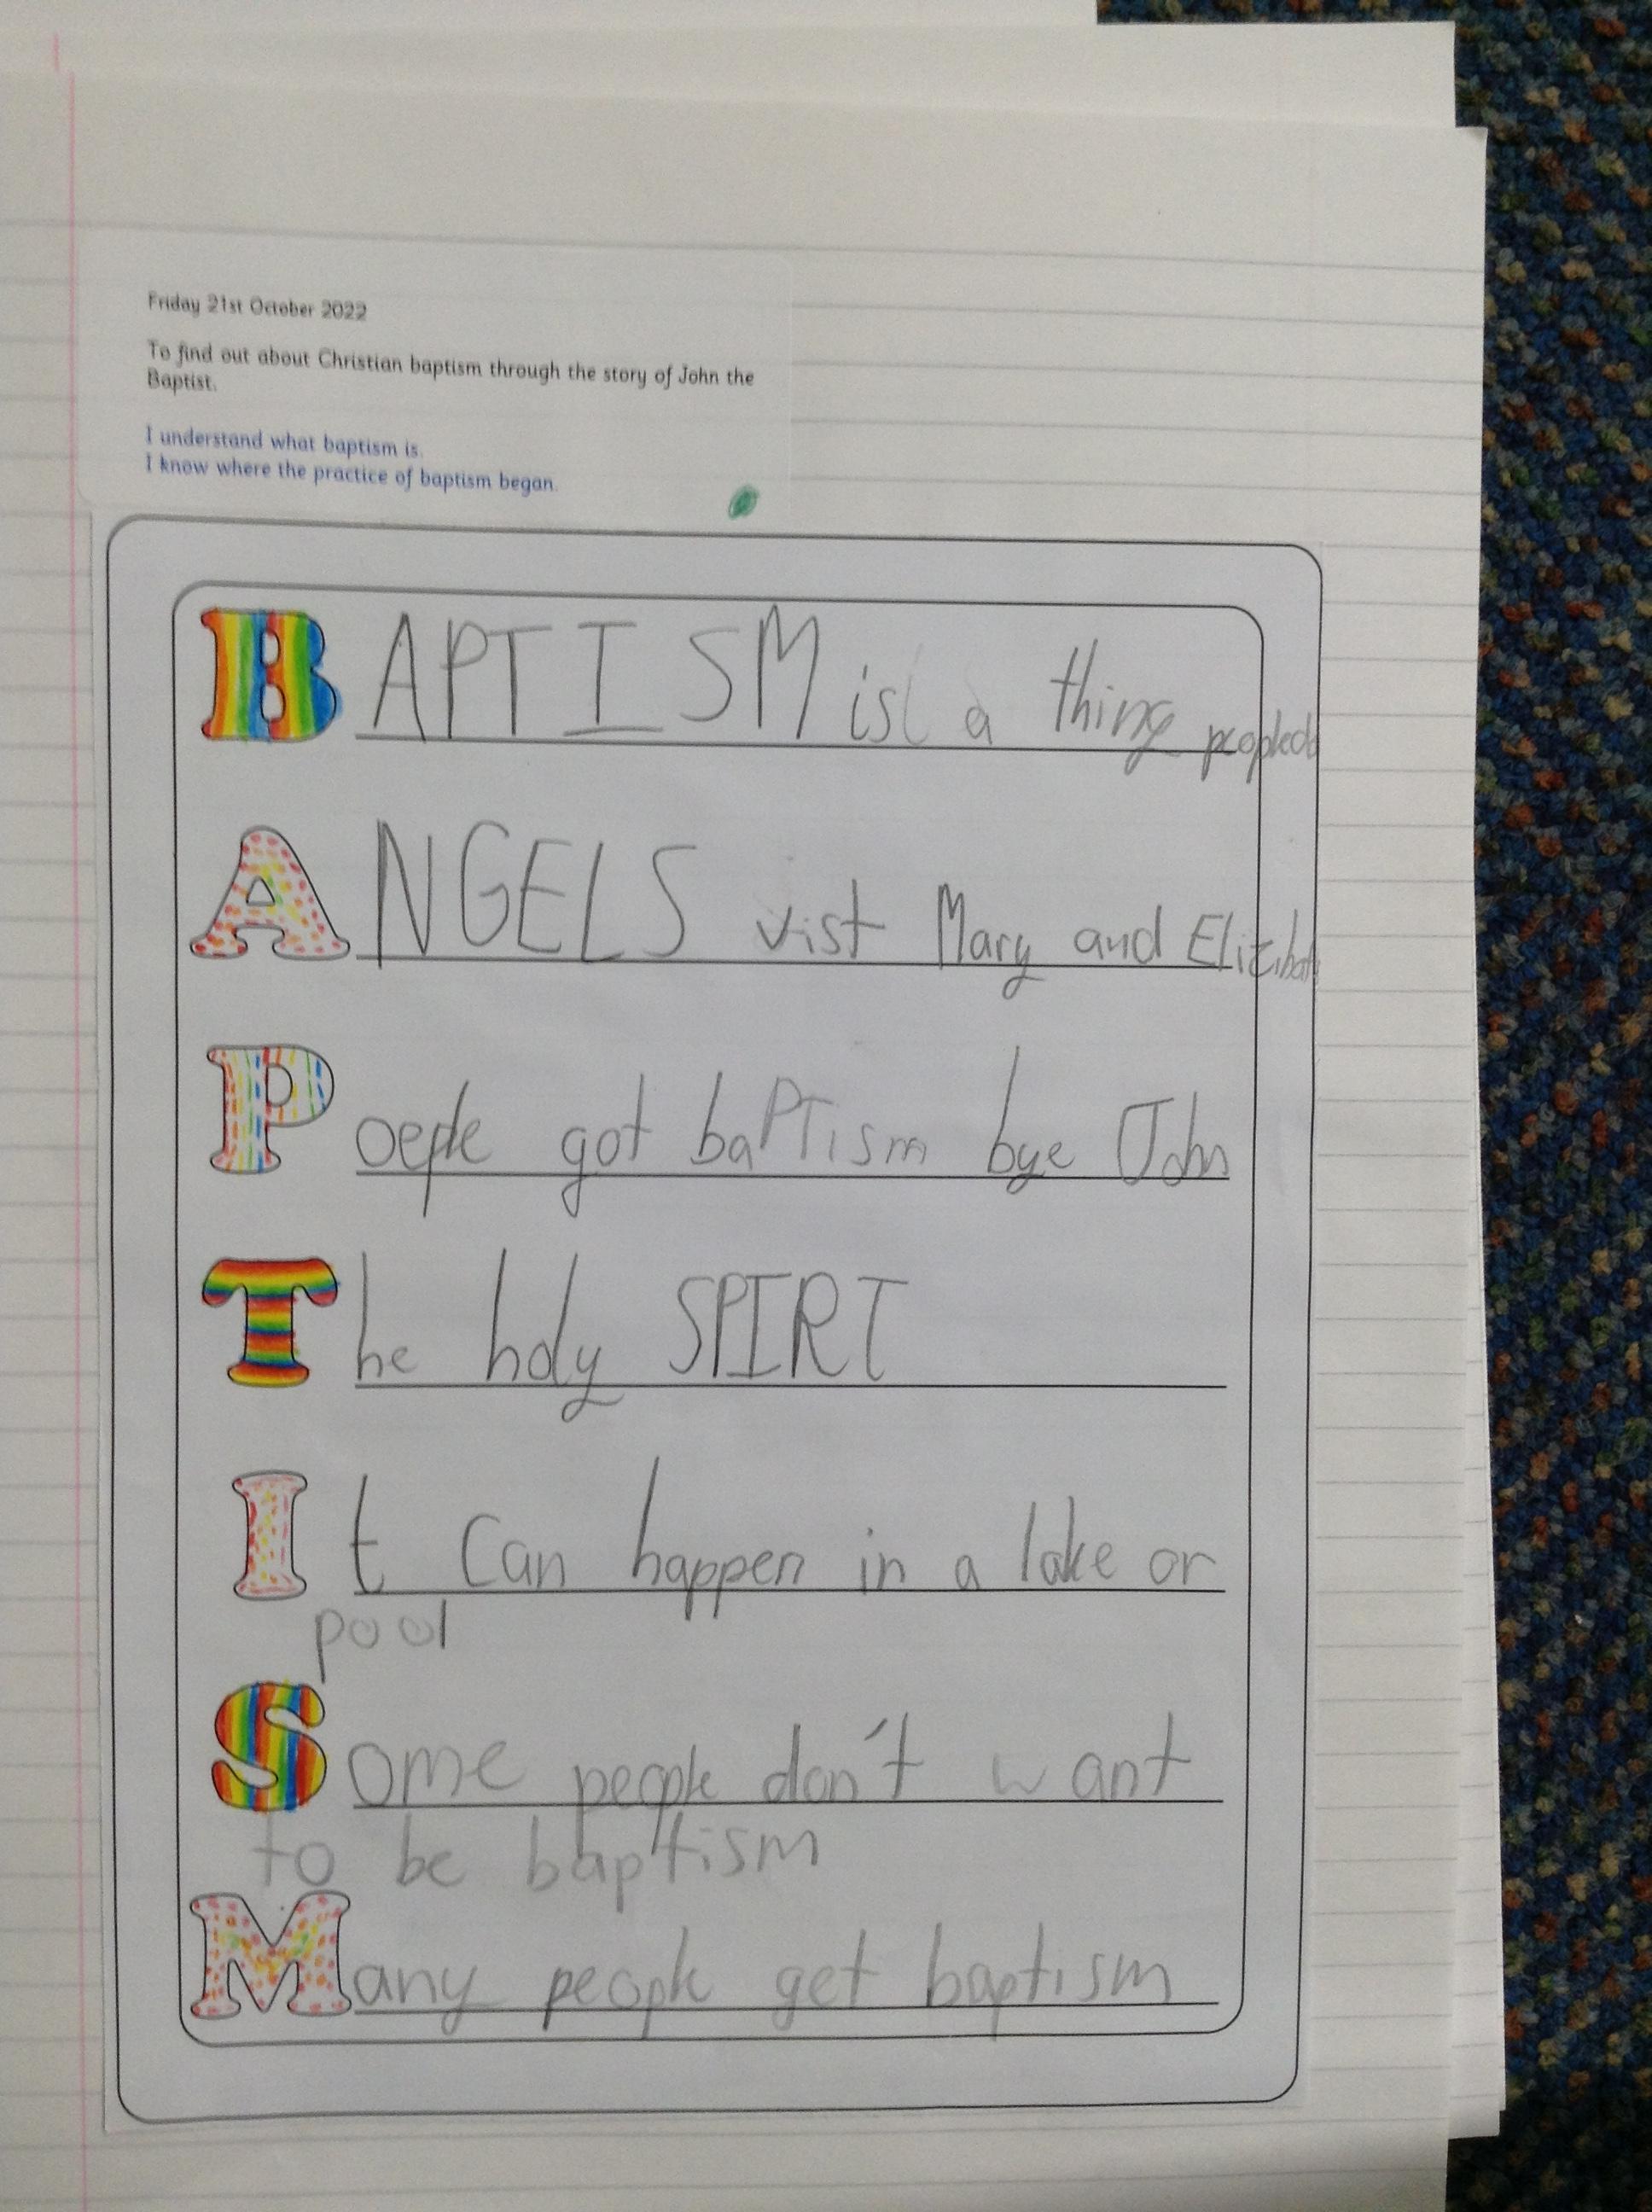 Friday 21st October 2022
To find out about Christian baptism through the story of John the
Baptist.
I understand what baptism is.
I know where the practice of baptism began.
BAPTISM is a thing people do
ANGELS vist Mary and Elizibath
Poeple got baPTism bye John
The holy SPIRT
It Can happen in a lake or
pool
Some people don't want
to be baptism
Many people get baptism